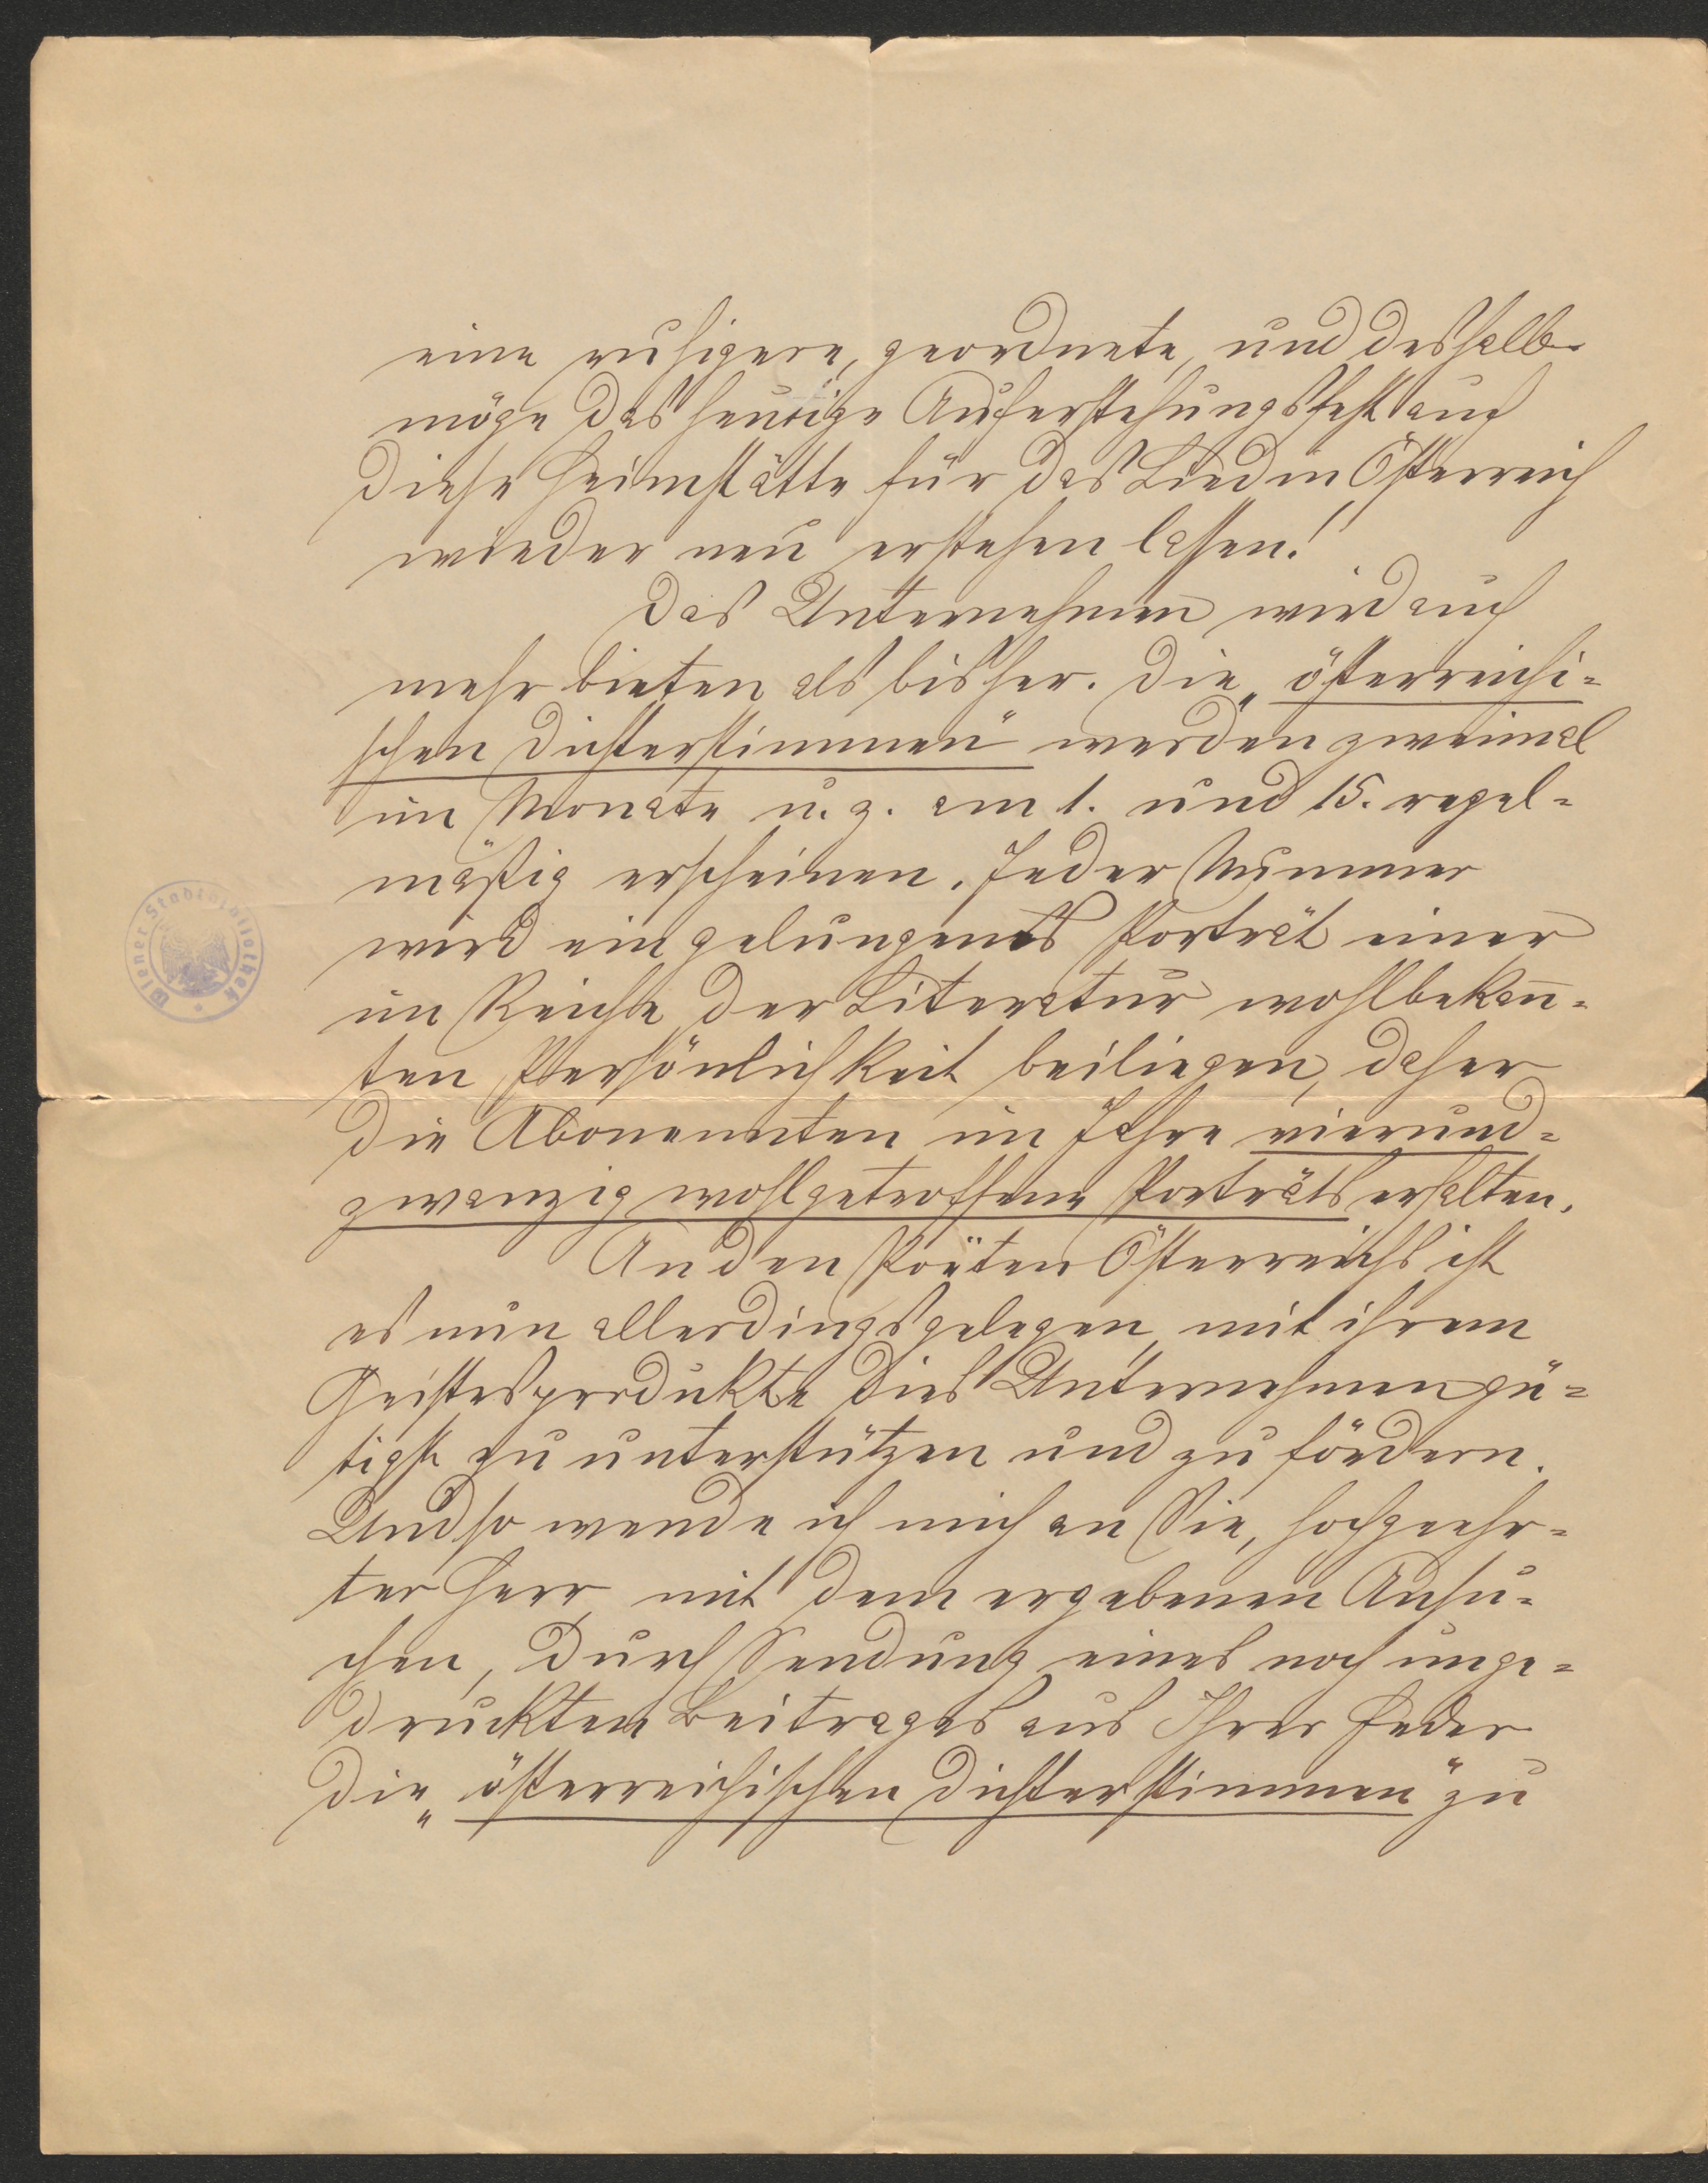 eine ruhigere, geordnete, und deshalb
möge das heutige Auferstehungsfest auch
diese Heimstätte für das Lied in Österreich
wieder neu erstehen lassen!
Das Unternehmen wird auch
mehr bieten als bisher. Die „österreichi=
schen Dichterstimmen“ werden zweimal
im Monate u. z. am 1. und 15. regel=
mäßig erscheinen. Jeder Nummer
wird ein gelungenes Porträt einer
im Reiche der Literatur wohlbekan̄=
ten Persönlichkeit beiliegen, daher
die Abonennten im Jahre vierund=
zwanzig wohlgetroffene Porträts erhalten.
An den Poëten Österreichs ist
es nun allerdings gelegen, mit ihrem
Geistesprodukte dies Unternehmen gü=
tigst zu unterstützen und zu fördern.
Und so wende ich mich an Sie, hochgeehr=
ter Herr mit dem ergebenen Ansu=
chen, durch Sendung eines noch unge=
druckten Beitrages aus Ihrer Feder
die „österreichischen Dichterstimmen“ zu
Wiener Stadtbibliothek